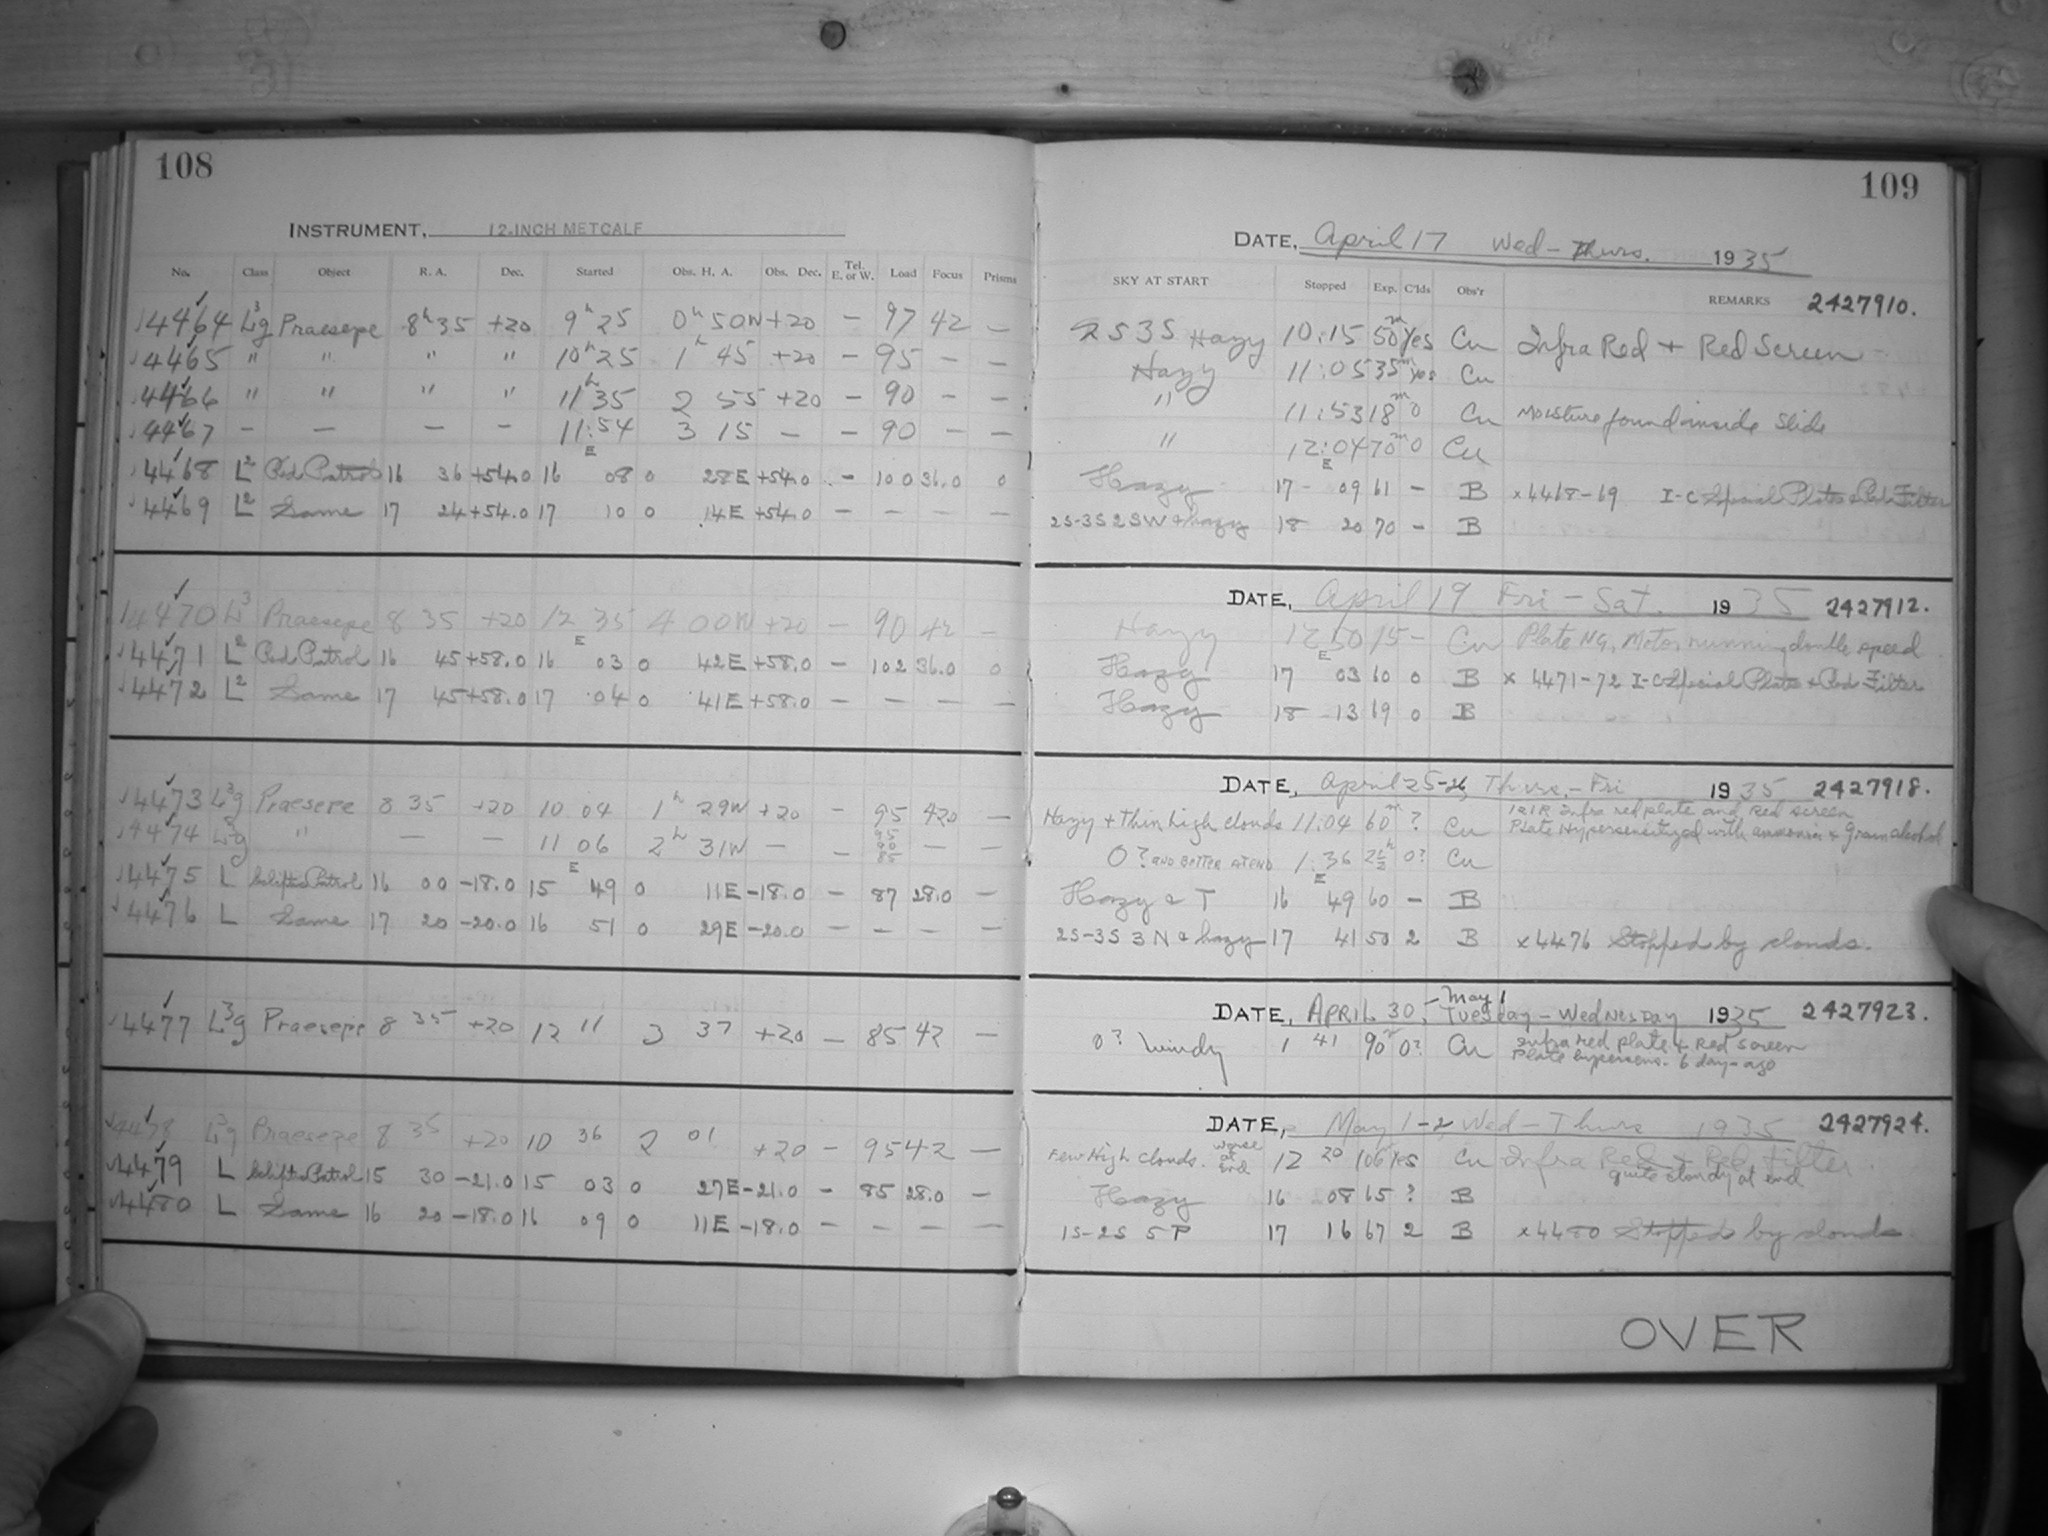 108
INSTRUMENT, 12-INCH METCALF
No. Class Object R. A. Dec. Started Obs. H. A. Obs. Dec. Tel. E. or W. Load Focus Prisms
14464 L3g Praesepe 8h 35 +20 9h 25 0h 50W +20 — 97 42 —
14465 " " " " 10h 25 1h 45 +20 — 95 — —
14466 " " " " 11h 35 2 55 +20 — 90 — —
14467 — — — — 11:54 3 15 — — 90 — —
14468 L2 Red Patrol 16 36 +54.0 E 16 08 0 28E +54.0 — 100 36.0 0
14469 L2 Same 17 24 +54.0 17 10 0 14E +54.0 — — — —
14470 L3 Praesepe 8 35 +20 12 35 4 00W +20 — 90 42 —
14471 L2 Red Patrol 16 45 +58.0 E 16 03 0 42E +58.0 — 102 36.0 0
14472 L2 Same 17 45 +58.0 17 04 0 41E +58.0 — — — —
14473 L3g Praesepe 8 35 +20 10 04 1h 29W +20 — 95 420 —
14474 L3g " — — 11 06 2h 31W — — 85 —
14475 L Ecliptic Patrol 16 00 -18.0 E 15 49 0 11E -18.0 — 87 28.0 —
14476 L Same 17 20 -20.0 16 51 0 29E -20.0 — — — —
14477 L3g Praesepe 8 35 +20 12 11 3 37 +20 — 85 42 —
14478 L3g Praesepe 8 35 +20 10 36 2 01 +20 — 95 42 —
14479 L Ecliptic Patrol 15 30 -21.0 15 03 0 27E -21.0 — 85 28.0 —
14480 L Same 16 20 -18.0 16 09 0 11E -18.0 — — — —
109
DATE, April 17 Wed - Thurs. 1935
SKY AT START Stopped Exp. C'lds Obs'r REMARKS 2427910.
2S3S Hazy 10:15 50m Yes Cn Infra Red + Red Screen
Hazy 11:05 35m Yes Cn
" 11:53 18m 0 Cn Moisture found inside slide
" 12:04 70m 0 Cn
Hazy E 17 09 61 — B x4468-69 I-C Special Plate & Red Filter
2S-3S 2SW & hazy 18 20 70 — B
DATE, April 19 Fri - Sat. 1935 2427912.
Hazy 12 50 15 — Cn Plate NG, Motor running double speed
Hazy E 17 03 60 0 B x 4471-72 I-C Special Plate & Red Filter
Hazy 18 13 69 0 B
DATE, April 25-26, Thurs.-Fri 1935 2427918.
Hazy + thin high clouds 11:04 60m ? Cn Infra red plate and Red screen
Plate Hypersensitized with ammonia & grain alcohol
0? AND BETTER AT END 1:36 2½h 0? Cn
Hazy & T E 16 49 60 — B
2S-3S 3N & hazy 17 41 50 2 B x4476 Stopped by clouds.
DATE, APRIL 30, - May 1 Tuesday - Wednesday 1935 2427923.
0? windy 1 41 90m 0? Cn Infra red plate & Red Screen
Plate hypersens. 6 days ago
DATE, May 1-2, Wed - Thurs 1935 2427924.
Few High Clouds. worse at end 12 20 106m Yes Cn Infra Red & Red Filter.
quite cloudy at end
Hazy 16 08 65 ? B
1S-2S 5P 17 16 67 2 B x4480 Stopped by clouds
OVER